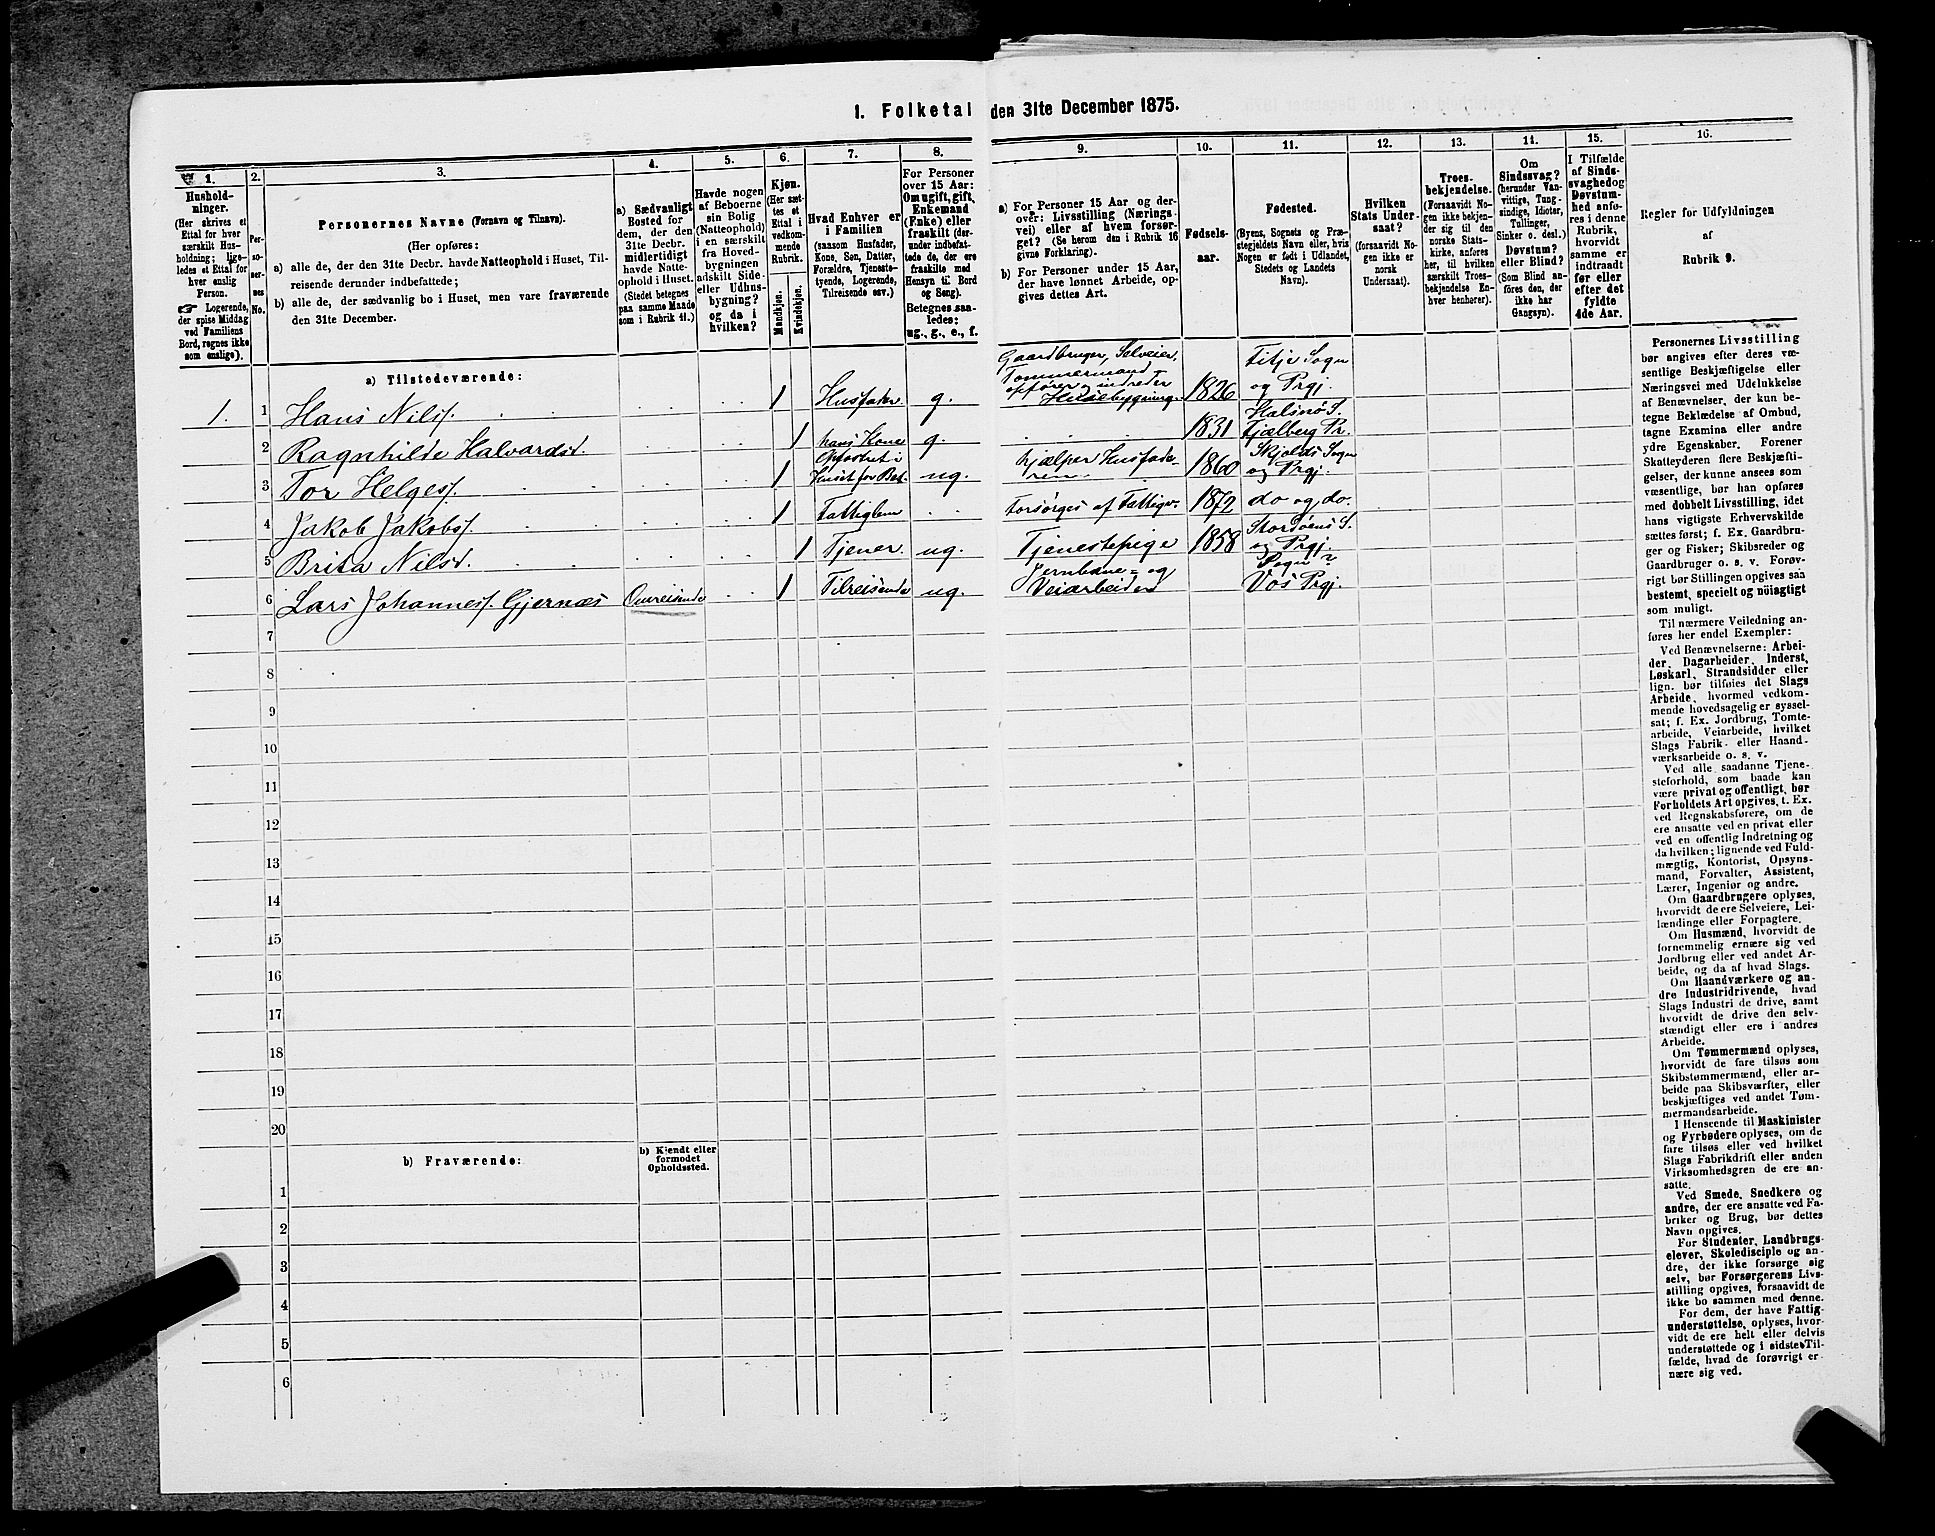 1. Folketal den 31te December 1875.
1.
2.
3.
4.
5.
6.
7.
8.
9.
10.
11.
12.
13.
14.
15.
16.
Hushold-
ninger.
(Her skrives et
Ettal for hver
særskilt Hus-
holdning; lige-
ledes et Ettal for
hver enslig
Person.
☞ Logerende,
der spise Middag
ved Familiens
Bord, regnes ikke
som enslige).
Per-
so-
ner-
nes
No.
Personernes Navne (Fornavn og Tilnavn).
(Her opføres:
a) alle de, der den 31te Decbr. havde Natteophold i Huset, Til-
reisende derunder indbefattede;
b) alle de, der sædvanlig bo i Huset, men vare fraværende
den 31te December.
a) Sædvanligt
Bosted for
dem, der den
31te Decbr.
midlertidigt
havde Natte-
ophold i Huset.
(Stedet betegnes
paa samme Maade
som i Rubrik 11.)
Havde nogen
af Beboerne
sin Bolig
(Natteophold)
i en særskilt
fra Hoved-
bygningen
adskilt Side-
eller Udhus-
bygning?
og da i
hvilken?
Kjøn.
(Her sæt-
tes et
Ettal i
vedkom-
mende
Rubrik.
Mandkjøn.
Kvindekjøn.
Hvad Enhver er
i Familien
(saasom Husfader,
Kone, Søn, Datter,
Forældre, Tjeneste-
tyende, Logerende,
Tilreisende osv.)
For Personer
over 15 Aar:
Om ugift, gift,
Enkemand
(Enke) eller
fraskilt (der-
under indbefat-
tede de, der ere
fraskilte med
Hensyn til Bord
og Seng).
Betegnes saa-
ledes:
ug., g., e., f.
a) For Personer 15 Aar og der-
over: Livsstilling (Nærings-
vei) eller af hvem forsør-
get? (Se herom den i Rubrik 16
givne Forklaring).
b) For Personer under 15 Aar,
der have lønnet Arbeide, op-
gives dettes Art.
Fødsels-
aar.
Fødested.
(Byens, Sognets og Præ-
stegjeldets Navn eller, hvis
Nogen er født i Udlandet,
Stedets og Landets
Navn).
Hvilken
Stats Under-
saat?
(forsaavidt No-
gen ikke er
norsk
Undersaat).
Troes-
bekjendelse.
(Forsaavidt No-
gen ikke bekjen-
der sig til den
norske Stats-
kirke, anføres
her, til hvilken
særskilt Troes-
bekjendelse En-
hver henhører).
Om
Sindssvag?
(herunder Van-
vittige, Tung-
sindige, Idioter,
Tullinger,
Sinker o. desl.)
Døvstum?
eller Blind?
(Som Blind an-
føres den, der
ikke har
Gangsyn).
I Tilfælde
af Sinds-
svaghed og
Døvstum-
hed anfø-
res i denne
Rubrik,
hvorvidt
samme er
indtraadt
før eller
efter det
fyldte
4de Aar.
Regler for Udfyldningen
af
Rubrik 9.
a) Tilstedeværende:
1. 1 Hans Nilss. 1 Husfader g. Gaardbruger, Selveier, Tømmermand opfører og indreder Husebygning 1826 Fitje Sogn og Prgj.
2 Ragnhilde Halvardsd. 1 hans Kone g. 1831 Halsnø S. Fjælberg Pr.
3 Tor Helges. 1 Opfostret i Huset for Bet. ug. hjælper Husfaderen 1860 Skjolds Sogn og Prgj.
4 Jakob Jakobs. 1 Fattiglem Forsørges af Fattigv. 1872 do og do.
5 Brita Nilsd. 1 Tjener. ug. Tjenestepige 1858 Stordøens S. og Prgj.
6 Lars Johanness. Gjernæs Omreisende 1 Tilreisende ug. Jernbane- og Veiarbeider Sogn? Vos Prgj.
7
8
9
10
11
12
13
14
15
16
17
18
19
20
b) Fraværende:
b) Kjendt eller
formodet
Opholdssted.
1
2
3
4
5
6
Personernes Livsstilling
bør angives efter deres væ-
sentlige Beskjæftigelse eller
Næringsvei med Udelukkelse
af Benævnelser, der kun be-
tegne Beklædelse af Ombud,
tagne Examina eller andre
ydre Egenskaber. Forener
Skatteyderen flere Beskjæfti-
gelser, der kunne ansees som
væsentlige, bør han opføres
med dobbelt Livsstilling, idet
hans vigtigste Erhvervskilde
sættes først; f. Ex. Gaardbru-
ger og Fisker; Skibsreder og
Gaardbruger o. s. v. Forøv-
rigt bør Stillingen opgives saa
bestemt, specielt og nøiagtigt
som muligt.
Til nærmere Veiledning an-
føres her endel Exempler:
Ved Benævnelserne: Arbei-
der, Dagarbeider, Inderst,
Løskarl, Strandsidder eller
lign. bør tilføies det Slags
Arbeide, hvormed vedkom-
mende hovedsagelig er syssel-
sat; f. Ex. Jordbrug, Tomte-
arbeide, Veiarbeide, hvilket
Slags Fabrik- eller Haand-
værksarbeide o. s. v.
Ved alle saadanne Tjene-
steforhold, som baade kan
være privat og offentligt, bør
Forholdets Art opgives, t. Ex.
ved Regnskabsførere, om de
ere ansatte ved en privat eller
ved en offentlig Indretning og
da hvilken; lignende ved Fuld-
mægtig, Kontorist, Opsyns-
mand, Forvalter, Assistent,
Lærer, Ingeniør og andre.
Om Gaardbrugere oplyses,
hvorvidt de ere Selveiere, Lei-
lændinge eller Forpagtere.
Om Husmænd, hvorvidt de
fornemmelig ernære sig ved
Jordbrug eller ved andet Ar-
beide, og da af hvad Slags.
Om Haandværkere og an-
dre Industridrivende, hvad
Slags Industri de drive, samt
hvorvidt de drive den selv-
stændigt eller ere i andres
Arbeide.
Om Tømmermænd oplyses,
hvorvidt de fare tilsøs som
Skibstømmermænd, eller ar-
beide paa Skibsværfter, eller
beskjæftiges ved andet Tøm-
mermandsarbeide.
I Henseende til Maskinister
og Fyrbødere oplyses, om de
fare tilsøs eller ved hvilket
Slags Fabrikdrift eller anden
Virksomhedsgren de ere an-
satte.
Ved Smede, Snedkere og
andre, der ere ansatte ved Fa-
briker og Brug, bør dettes
Navn opgives.
For Studenter, Landbrugs-
elever, Skoledisciple og an-
dre, der ikke forsørge sig
selv, bør Forsørgerens Livs-
stilling opgives, forsaavidt de
ikke bo sammen med denne.
For dem, der have Fattig-
understøttelse, oplyses, hvor-
vidt de ere helt eller delvis
understøttede og i sidste Til-
fælde, hvad de forøvrigt er-
nære sig ved.